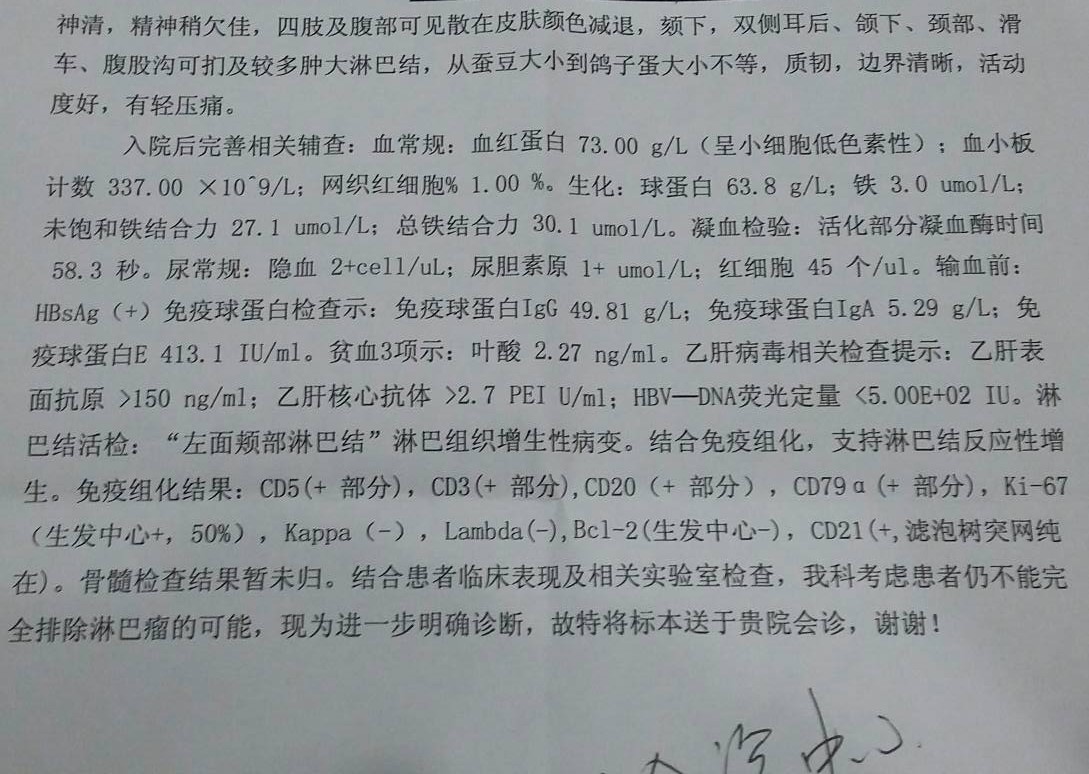 神清，精神稍欠佳，四肢及腹部可见散在皮肤颜色减退，颏下，双侧耳后、颌下、颈部、滑
车、腹股沟可扪及较多肿大淋巴结，从蚕豆大小到鸽子蛋大小不等，质韧，边界清晰，活动
度好，有轻压痛。
入院后完善相关辅查：血常规：血红蛋白 73.00 g/L（呈小细胞低色素性）；血小板
计数 337.00 ×10^9/L；网织红细胞% 1.00 %。生化：球蛋白 63.8 g/L；铁 3.0 umol/L；
未饱和铁结合力 27.1 umol/L；总铁结合力 30.1 umol/L。凝血检验：活化部分凝血酶时间
58.3 秒。尿常规：隐血 2+cell/uL；尿胆素原 1+ umol/L；红细胞 45 个/ul。输血前：
HBsAg（+）免疫球蛋白检查示：免疫球蛋白IgG 49.81 g/L；免疫球蛋白IgA 5.29 g/L；免
疫球蛋白E 413.1 IU/ml。贫血3项示：叶酸 2.27 ng/ml。乙肝病毒相关检查提示：乙肝表
面抗原 >150 ng/ml；乙肝核心抗体 >2.7 PEI U/ml；HBV—DNA荧光定量 <5.00E+02 IU。淋
巴结活检：“左面颊部淋巴结”淋巴组织增生性病变。结合免疫组化，支持淋巴结反应性增
生。免疫组化结果：CD5(+ 部分)，CD3(+ 部分),CD20（+ 部分），CD79α(+ 部分)，Ki-67
（生发中心+，50%），Kappa（-），Lambda(-),Bcl-2(生发中心-)，CD21(+,滤泡树突网纯
在)。骨髓检查结果暂未归。结合患者临床表现及相关实验室检查，我科考虑患者仍不能完
全排除淋巴瘤的可能，现为进一步明确诊断，故特将标本送于贵院会诊，谢谢！
中心